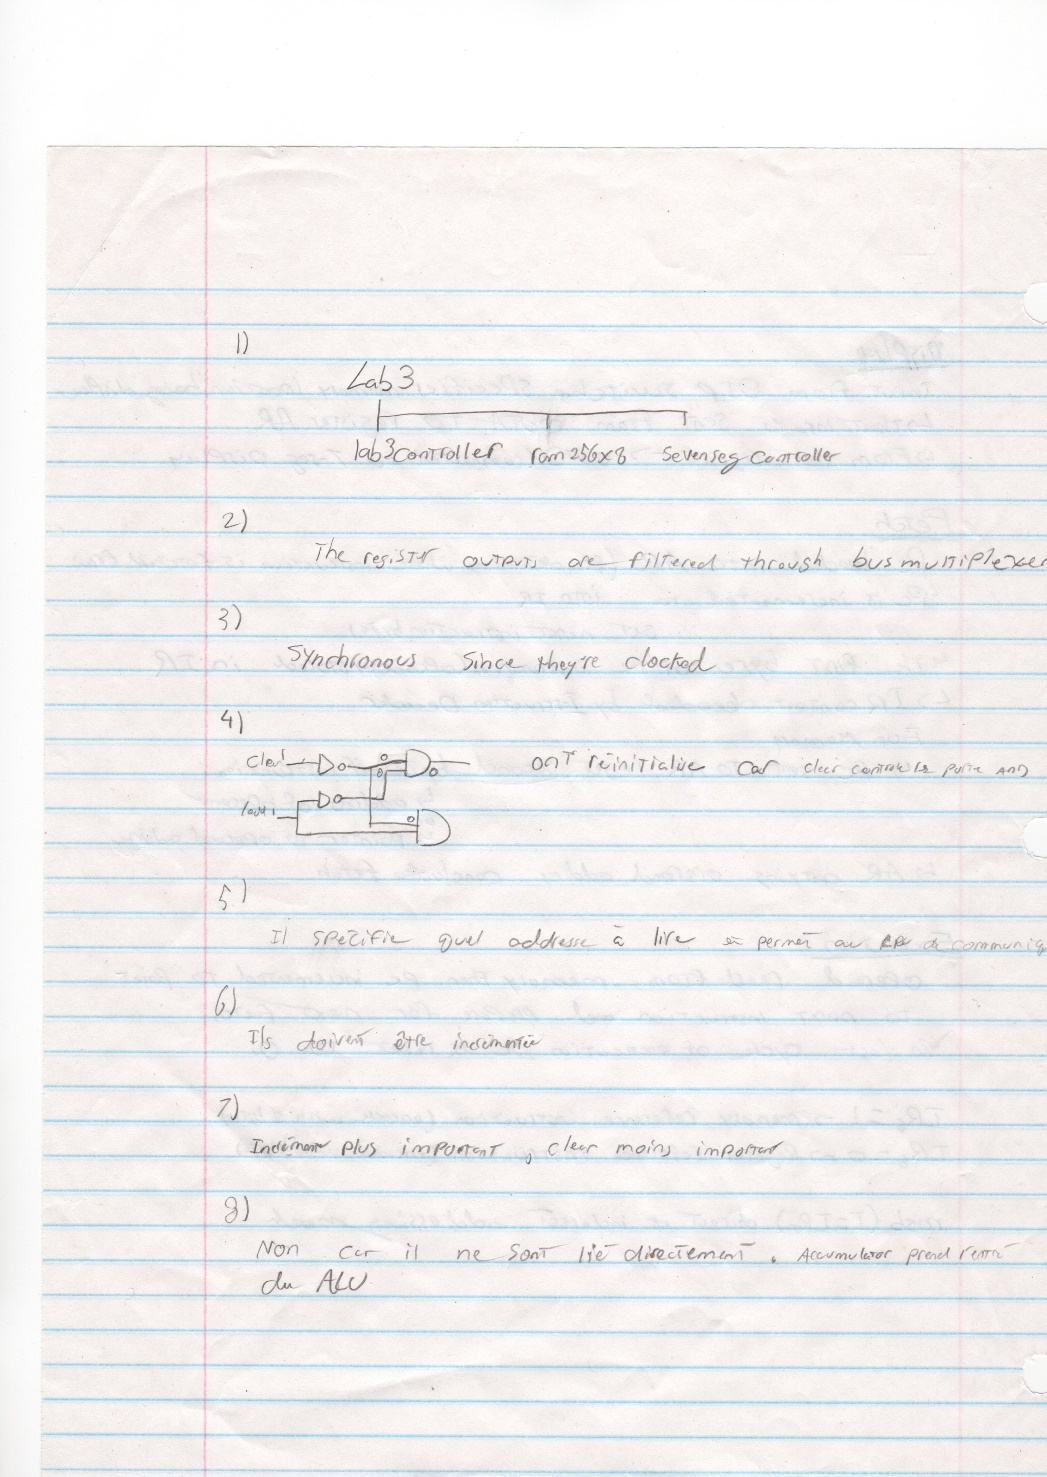 1)
Lab 3
lab3controller ram256x8 sevenseg controller
2)
The register outputs are filtered through bus multiplexer
3)
Synchronous since they're clocked
4)
Clear ont réinitialise car clear contrôle la porte AND
load
5)
Il spécifie quel addresse à lire et permet au CPU de communiq
6)
Ils doivent être incrémentée
7)
Incrémente plus important, clear moins important
8)
Non car il ne sont lié directement. Accumulator prend l'entré
du ALU